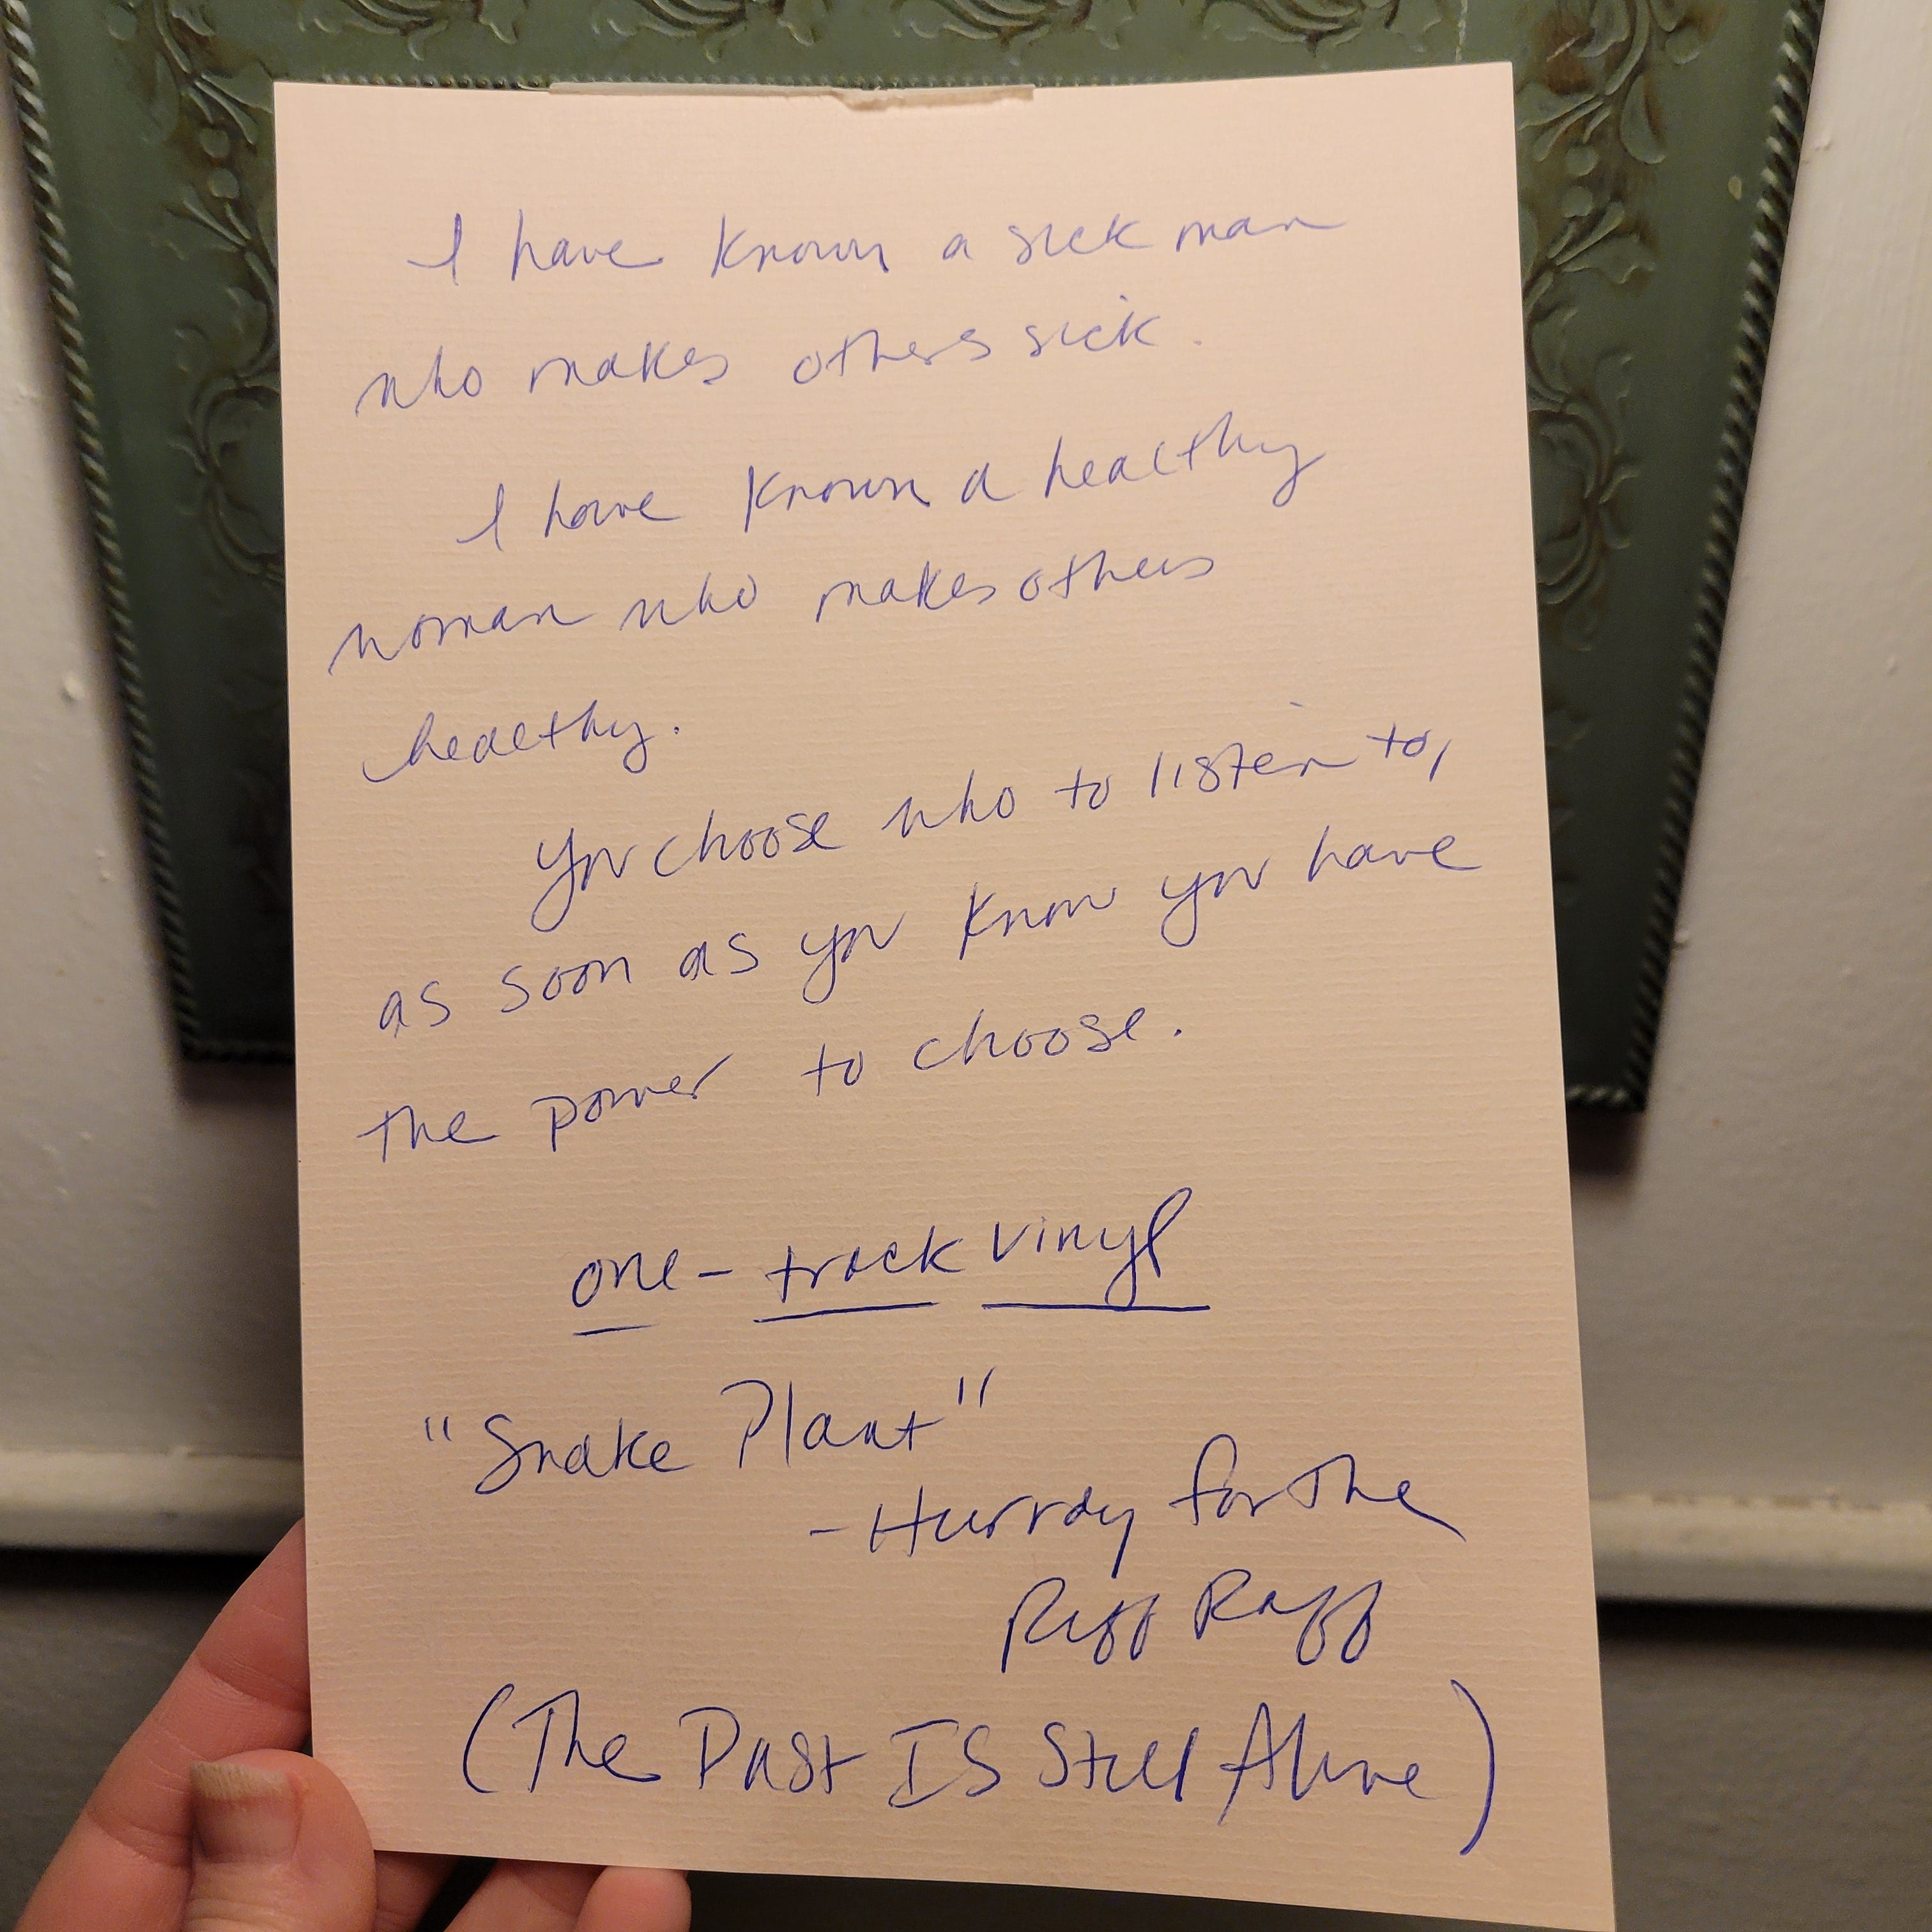 I have known a sick man
who makes others sick.
I have known a healthy
woman who makes others
healthy.
You choose who to listen to,
as soon as you know you have
the power to choose.
one-track vinyl
"Snake Plant"
-Hurray for the
Riff Raff
(The Past IS Still Alive)